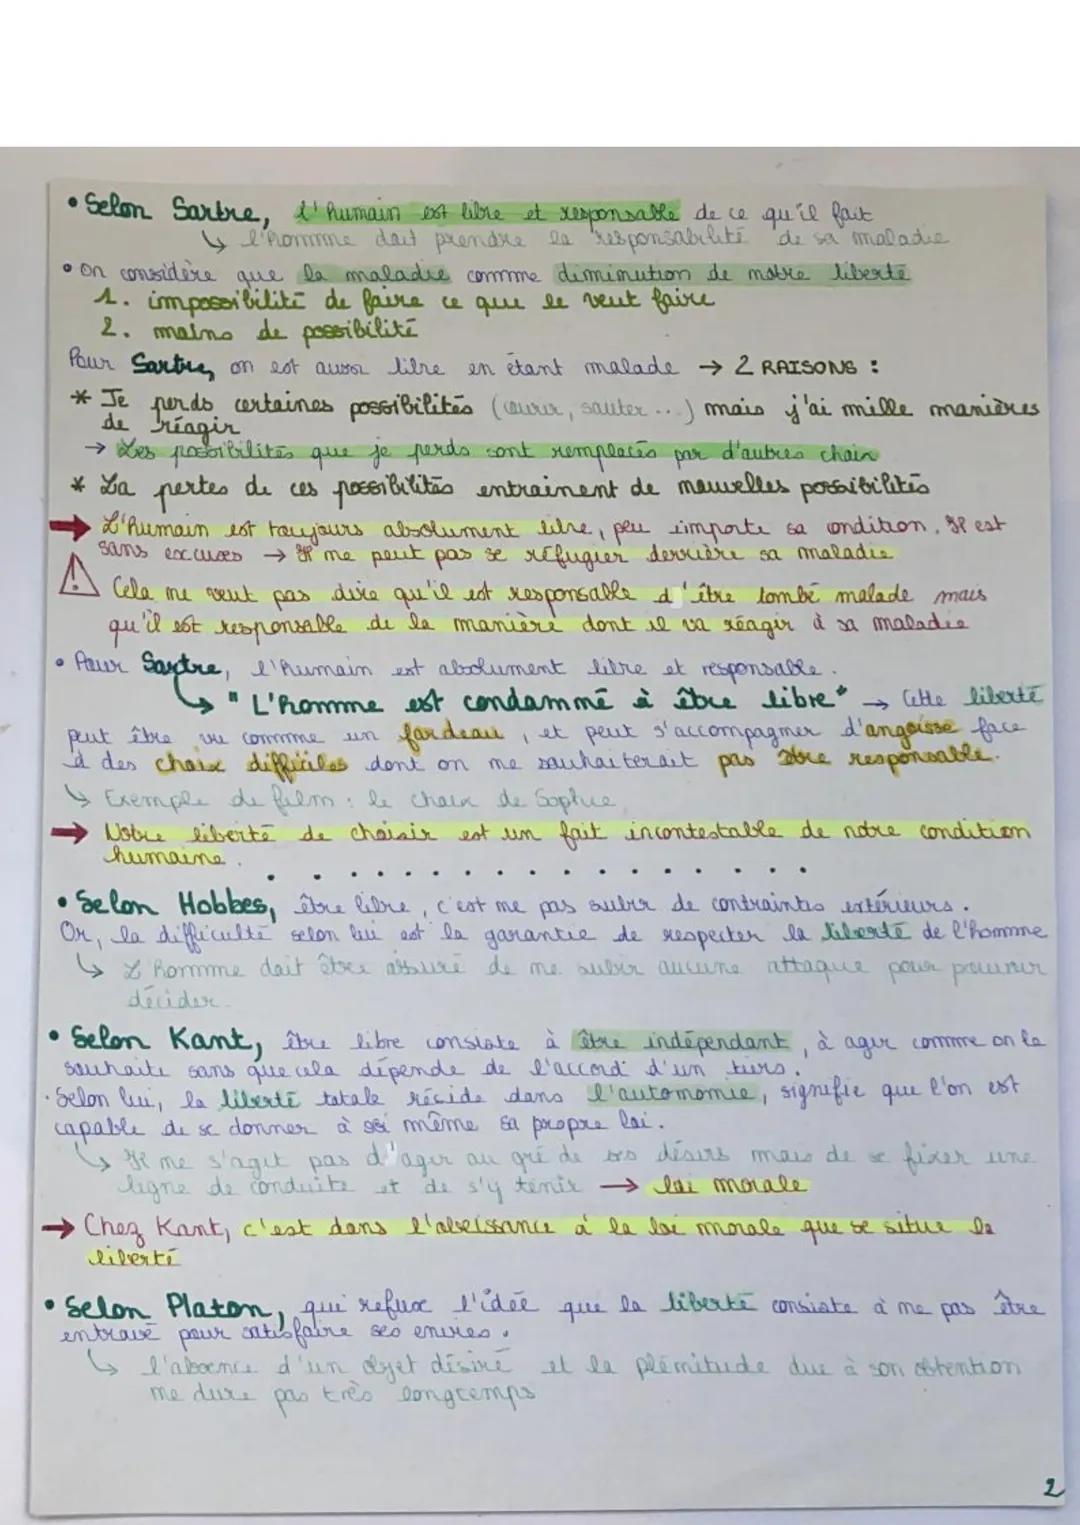 • Selon Sartre, l'humain est libre et responsable de ce qu'il fait
↳ l'homme doit prendre la responsabilité de sa maladie
• On considère que la maladie comme diminution de notre liberté
1. impossibilité de faire ce que le veut faire
2. moins de possibilité
Pour Sartre, on est aussi libre en étant malade → 2 RAISONS :
* Je perds certaines possibilités (courir, sauter...) mais j'ai mille manières
de réagir
→ Les possibilités que je perds sont remplacés par d'autres choix
* La pertes de ces possibilités entrainent de nouvelles possibilités
→ L'humain est toujours absolument libre, peu importe sa condition. Il est
sans excuses → Il ne peut pas se réfugier derrière sa maladie
⚠ Cela ne veut pas dire qu'il est responsable d'être tombé malade mais
qu'il est responsable de la manière dont il va réagir à sa maladie
• Pour Sartre, l'humain est absolument libre et responsable.
↳ "L'homme est condamné à être libre" → Cette liberté
peut être vu comme un fardeau, et peut s'accompagner d'angoisse face
à des choix difficiles dont on ne souhaiterait pas être responsable.
↳ Exemple de film : le choix de Sophie
→ Notre liberté de choisir est un fait incontestable de notre condition
humaine.
• Selon Hobbes, être libre, c'est ne pas subir de contraintes extérieurs.
Or, la difficulté selon lui est la garantie de respecter la liberté de l'homme
↳ L'homme doit être assuré de ne subir aucune attaque pour pouvoir
décider.
• Selon Kant, être libre consiste à être indépendant, à agir comme on le
souhaite sans que cela dépende de l'accord d'un tiers.
• Selon lui, la liberté totale réside dans l'autonomie, signifie que l'on est
capable de se donner à soi même sa propre loi.
↳ Il ne s'agit pas d'agir au gré de ses désirs mais de se fixer une
ligne de conduite et de s'y tenir → loi morale
→ Chez Kant, c'est dans l'obeissance à la loi morale que se situe la
liberté
• Selon Platon, qui refuse l'idée que la liberté consiste à ne pas être
entravé pour satisfaire ses envies.
↳ l'absence d'un objet désiré et la plénitude due à son obtention
ne dure pas très longtemps
2